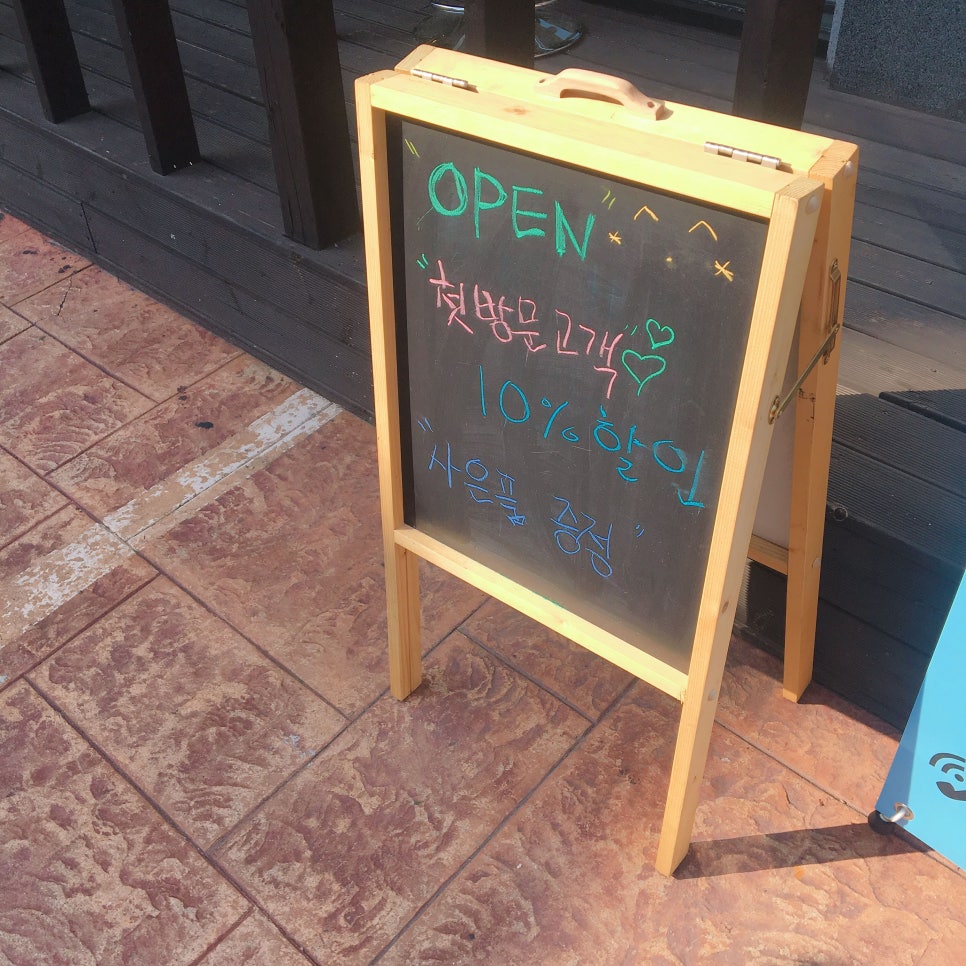 OPEN"
"첫방문고객"
10%할인
"사은품 증정"